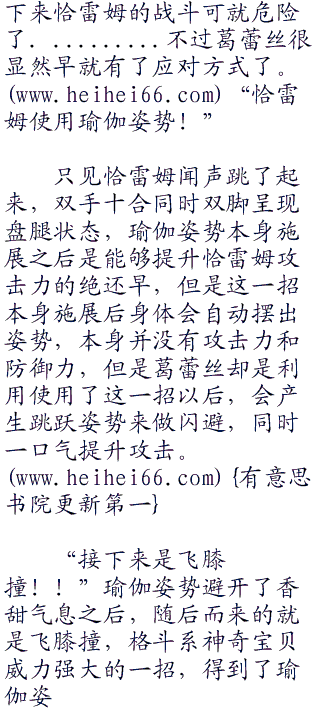 下来恰雷姆的战斗可就危险
了．.........不过葛蕾丝很
显然早就有了应对方式了。
(www.heihei66.com) “恰雷
姆使用瑜伽姿势！”
只见恰雷姆闻声跳了起
来，双手十合同时双脚呈现
盘腿状态，瑜伽姿势本身施
展之后是能够提升恰雷姆攻
击力的绝还早，但是这一招
本身施展后身体会自动摆出
姿势，本身并没有攻击力和
防御力，但是葛蕾丝却是利
用使用了这一招以后，会产
生跳跃姿势来做闪避，同时
一口气提升攻击。
(www.heihei66.com) {有意思
书院更新第一}
“接下来是飞膝
撞！！”瑜伽姿势避开了香
甜气息之后，随后而来的就
是飞膝撞，格斗系神奇宝贝
威力强大的一招，得到了瑜
伽姿